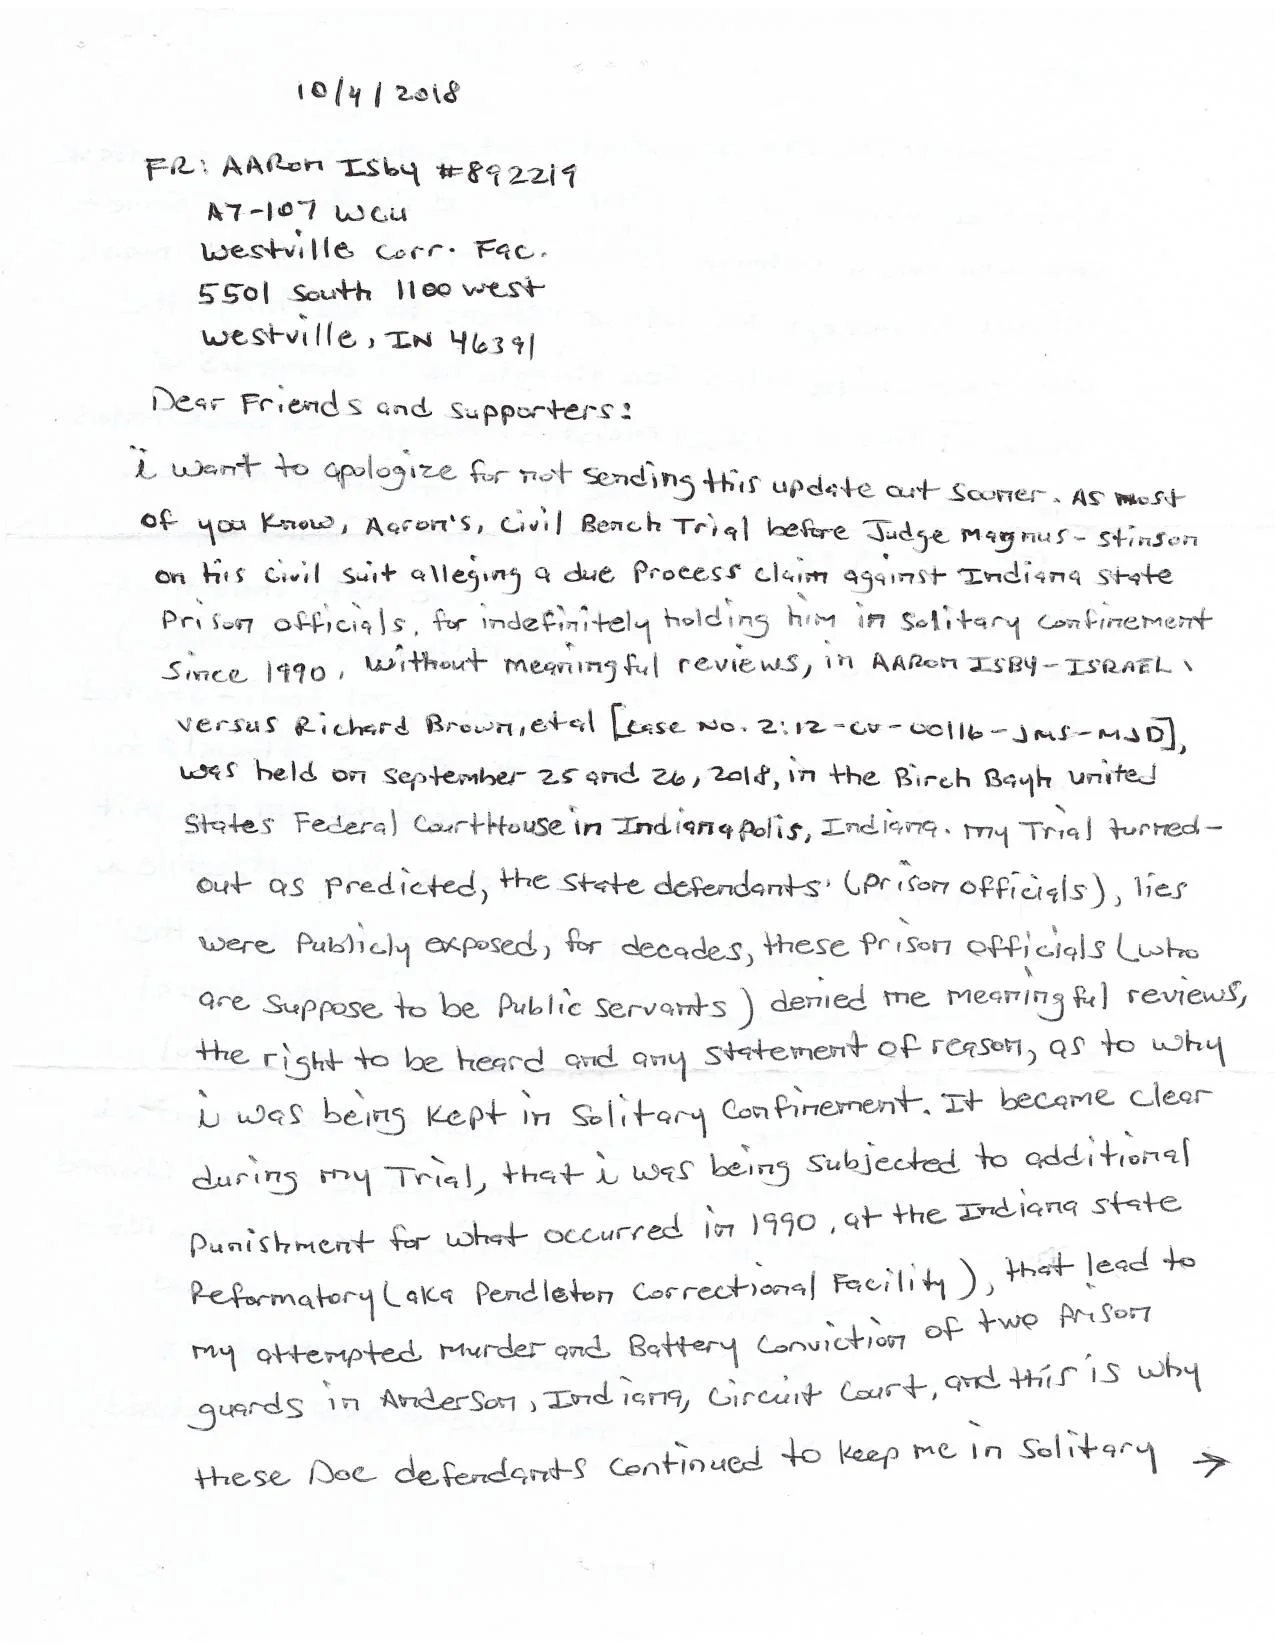 10/4/2018
FR: AARON ISby #892219
A7-107 WCU
Westville Corr. Fac.
5501 South 1100 West
Westville, IN 46391
Dear Friends and supporters:
i want to apologize for not sending this update out sooner. As most
of you Know, Aaron's, Civil Bench Trial before Judge Magnus-Stinson
on his Civil Suit alleging a due Process claim against Indiana State
Prison officials, for indefinitely holding him in Solitary confinement
Since 1990, without meaningful reviews, in AARON ISBY-ISRAEL
versus Richard Brown, etal [Case No. 2:12-cv-00116-JMS-MJD],
was held on September 25 and 26, 2018, in the Birch Bayh united
States Federal CourtHouse in Indianapolis, Indiana. my Trial turned-
out as predicted, the State defendants' (prison officials), lies
were Publicly exposed, for decades, these Prison officials (who
are suppose to be Public Servants) denied me meaningful reviews,
the right to be heard and any statement of reason, as to why
i was being Kept in Solitary Confinement. It became clear
during my Trial, that i was being subjected to additional
Punishment for what occurred in 1990, at the Indiana state
Reformatory (aka Pendleton Correctional Facility), that lead to
my attempted Murder and Battery Conviction of two prison
guards in Anderson, Indiana, Circuit Court, and this is why
these Doc defendants continued to keep me in Solitary →